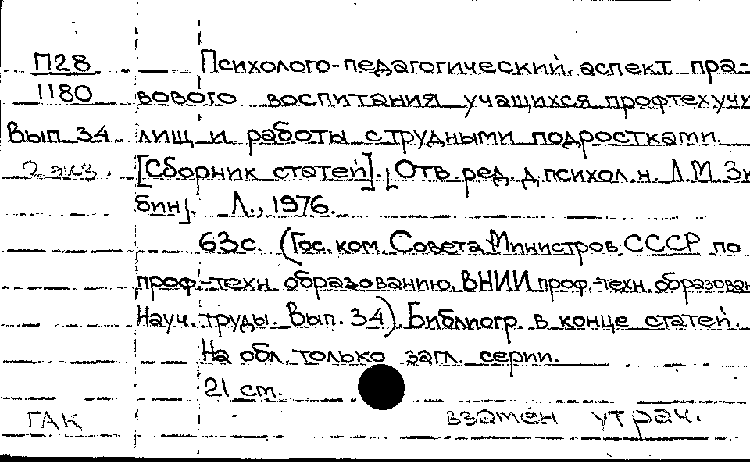 П28 Психолого-педагогический аспект пра-
1180 вового воспитания учащихся профтехучи
Вып. 34 лищ и работы с трудными подростками.
2 экз. [Сборник статей]. [Отв. ред. д. психол. н. Л.М. Зю
бин]. Л., 1976.
63с. (Гос. ком. Совета Министров СССР по
проф.-техн. образованию. ВНИИ проф.-техн. образован
Науч. труды. Вып. 34). Библиогр. в конце статей.
На обл. только загл. серии.
21 см.
ГАК взамен утрач.